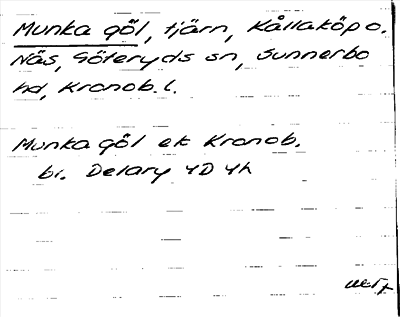 Munka göl, tjärn, Kållaköp o.
Näs, Göteryds sn, Sunnerbo
hd, Kronob. l.
Munka göl ek Kronob.
bl. Delary 4D 4h